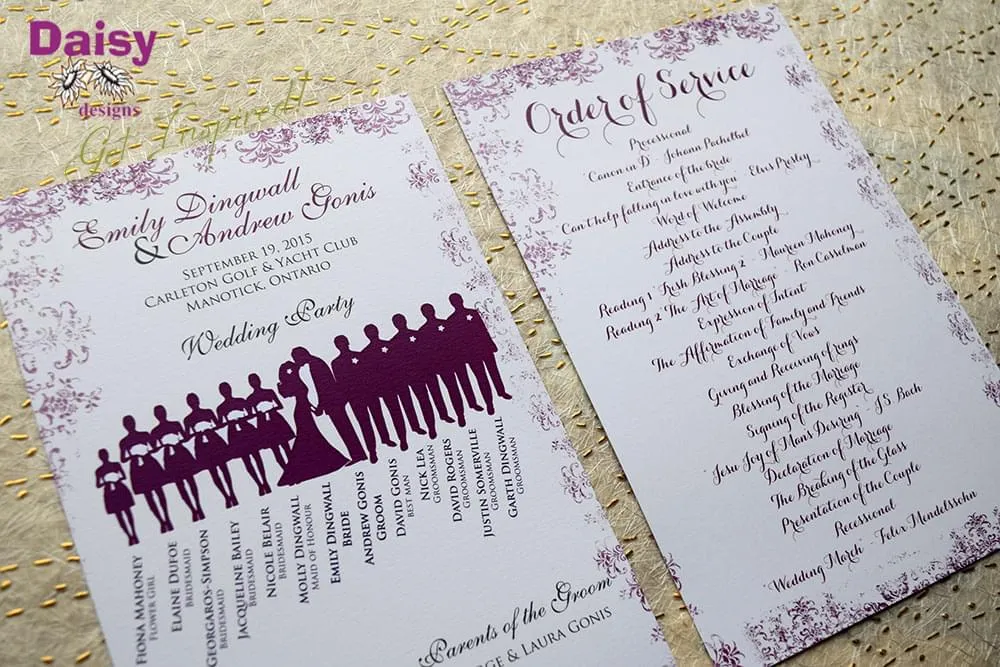 Daisy
designs
Get Inspired!
Emily Dingwall
& Andrew Gonis
September 19, 2015
Carleton Golf & Yacht Club
Manotick, Ontario
Wedding Party
Fiona Mahoney
Flower Girl
Elaine Dufoe
Bridesmaid
Georgaros-Simpson
Bridesmaid
Jacqueline Bailey
Bridesmaid
Nicole Belair
Bridesmaid
Molly Dingwall
Maid of Honour
Emily Dingwall
Bride
Andrew Gonis
Groom
David Gonis
Best Man
Nick Lea
Groomsman
David Rogers
Groomsman
Justin Somerville
Groomsman
Garth Dingwall
Groomsman
Parents of the Groom
& Laura Gonis
Order of Service
Processional
"Canon in D" Johann Pachelbel
Entrance of the bride
"Can't help falling in love with you" Elvis Presley
Word of Welcome
Address to the Assembly
Address to the Couple
Reading 1 "Irish Blessing 2" Maureen Mahoney
Reading 2 "The Art of Marriage" Ron Casselman
Expression of Intent
The Affirmation of Family and Friends
Exchange of Vows
Giving and Receiving of rings
Blessing of the Marriage
Signing of the Register
"Jesu Joy of Mans Desiring" J.S. Bach
Declaration of Marriage
The Breaking of the Glass
Presentation of the Couple
Recessional
"Wedding March" Felix Mendelssohn